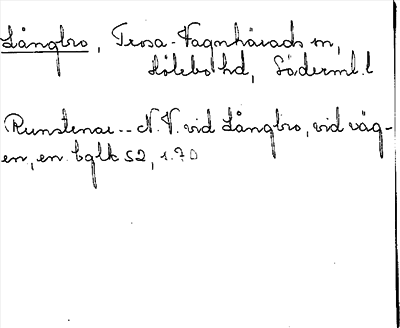 Långbro, Trosa-Vagnhärads sn,
Hölebo hd, Söderml. l
Runstenar -- N.V. vid Långbro, vid väg-
en, en. bglk 52, 1.70